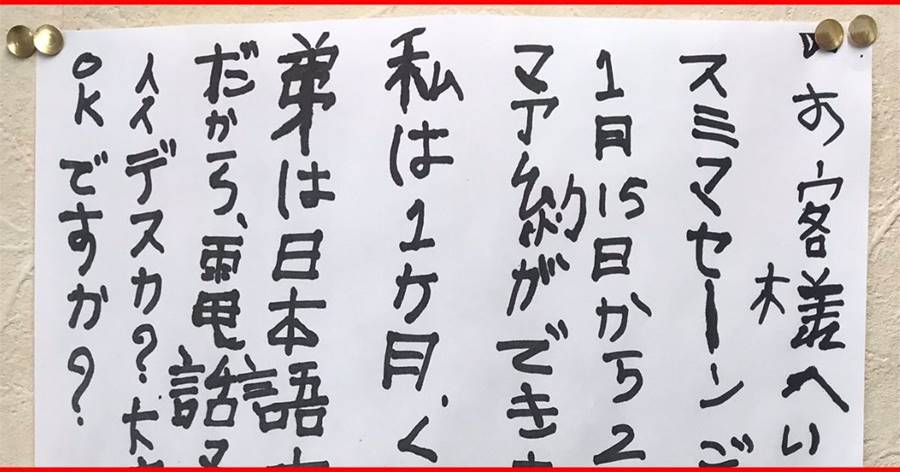 お客様へい
スミマセーンご
1月15日から2
予約ができ
私は1ケ月、く
弟は日本語
だから、電話
イイデスカ?大
OKですか?